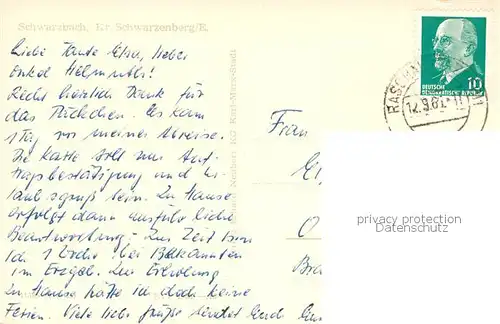 Schwarzbach, Kr. Schwarzenberg/E.
Liebe Tante Elsa, lieber
Onkel Hellmuth!
Recht herzlich Dank für
das Päckchen. Es kam
1 Tag vor meiner Abreise.
Die Karte soll nur
bestätigung und Ur-
laubsgruß sein. Zu Hause
erfolgt dann ausführliche
Beantwortung. Zur Zeit bin
ich 1 Woche bei Bekannten
im Erzgeb. Zur Erholung
Zu Hause hätte ich doch keine
Ferien. Viele liebe Grüße sendet Euch
Frau
O
10
DEUTSCHE
DEMOKRATISCHE REPUBLIK
RASCHAU
12.9.61
privacy protection
Datenschutz